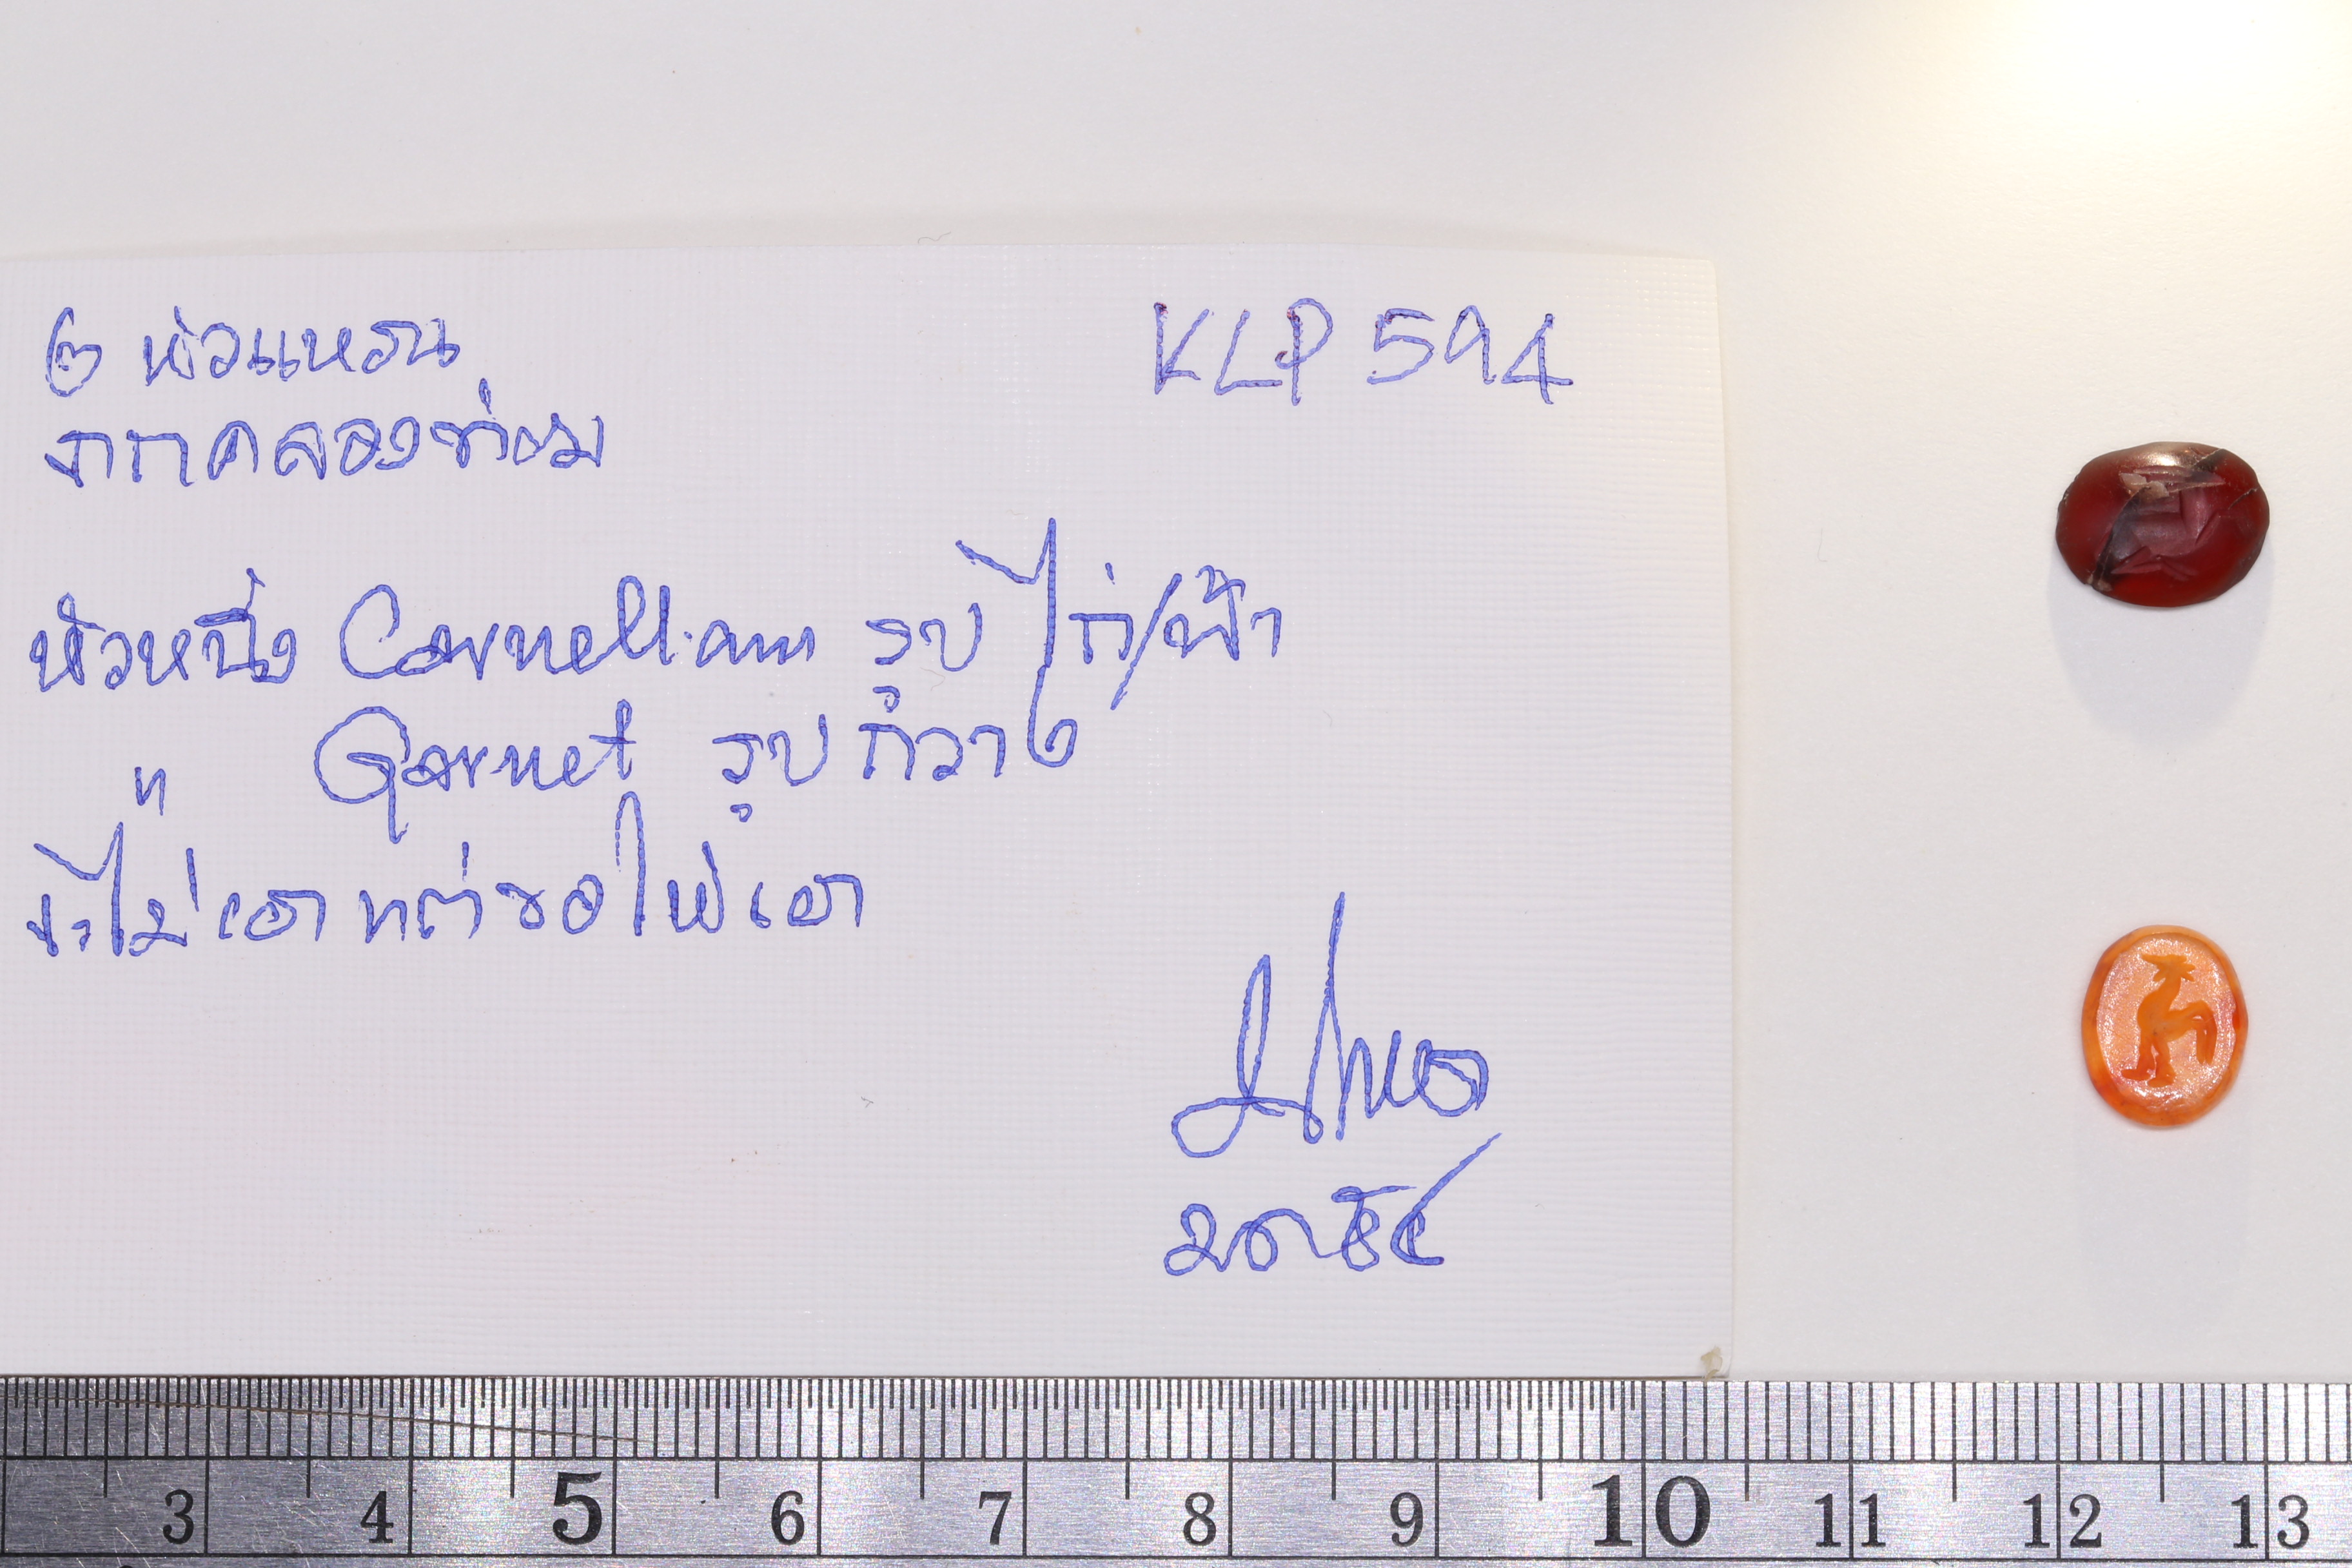 ๒ หัวแหวน
KLP 594
จากคลองท่อม
หัวหนึ่ง Carnelian รูปไก่/ฟ้า
" Garnet รูป กวาง
จะไม่เอา แต่ขอให้เอา
3 4 5 6 7 8 9 10 11 12 13